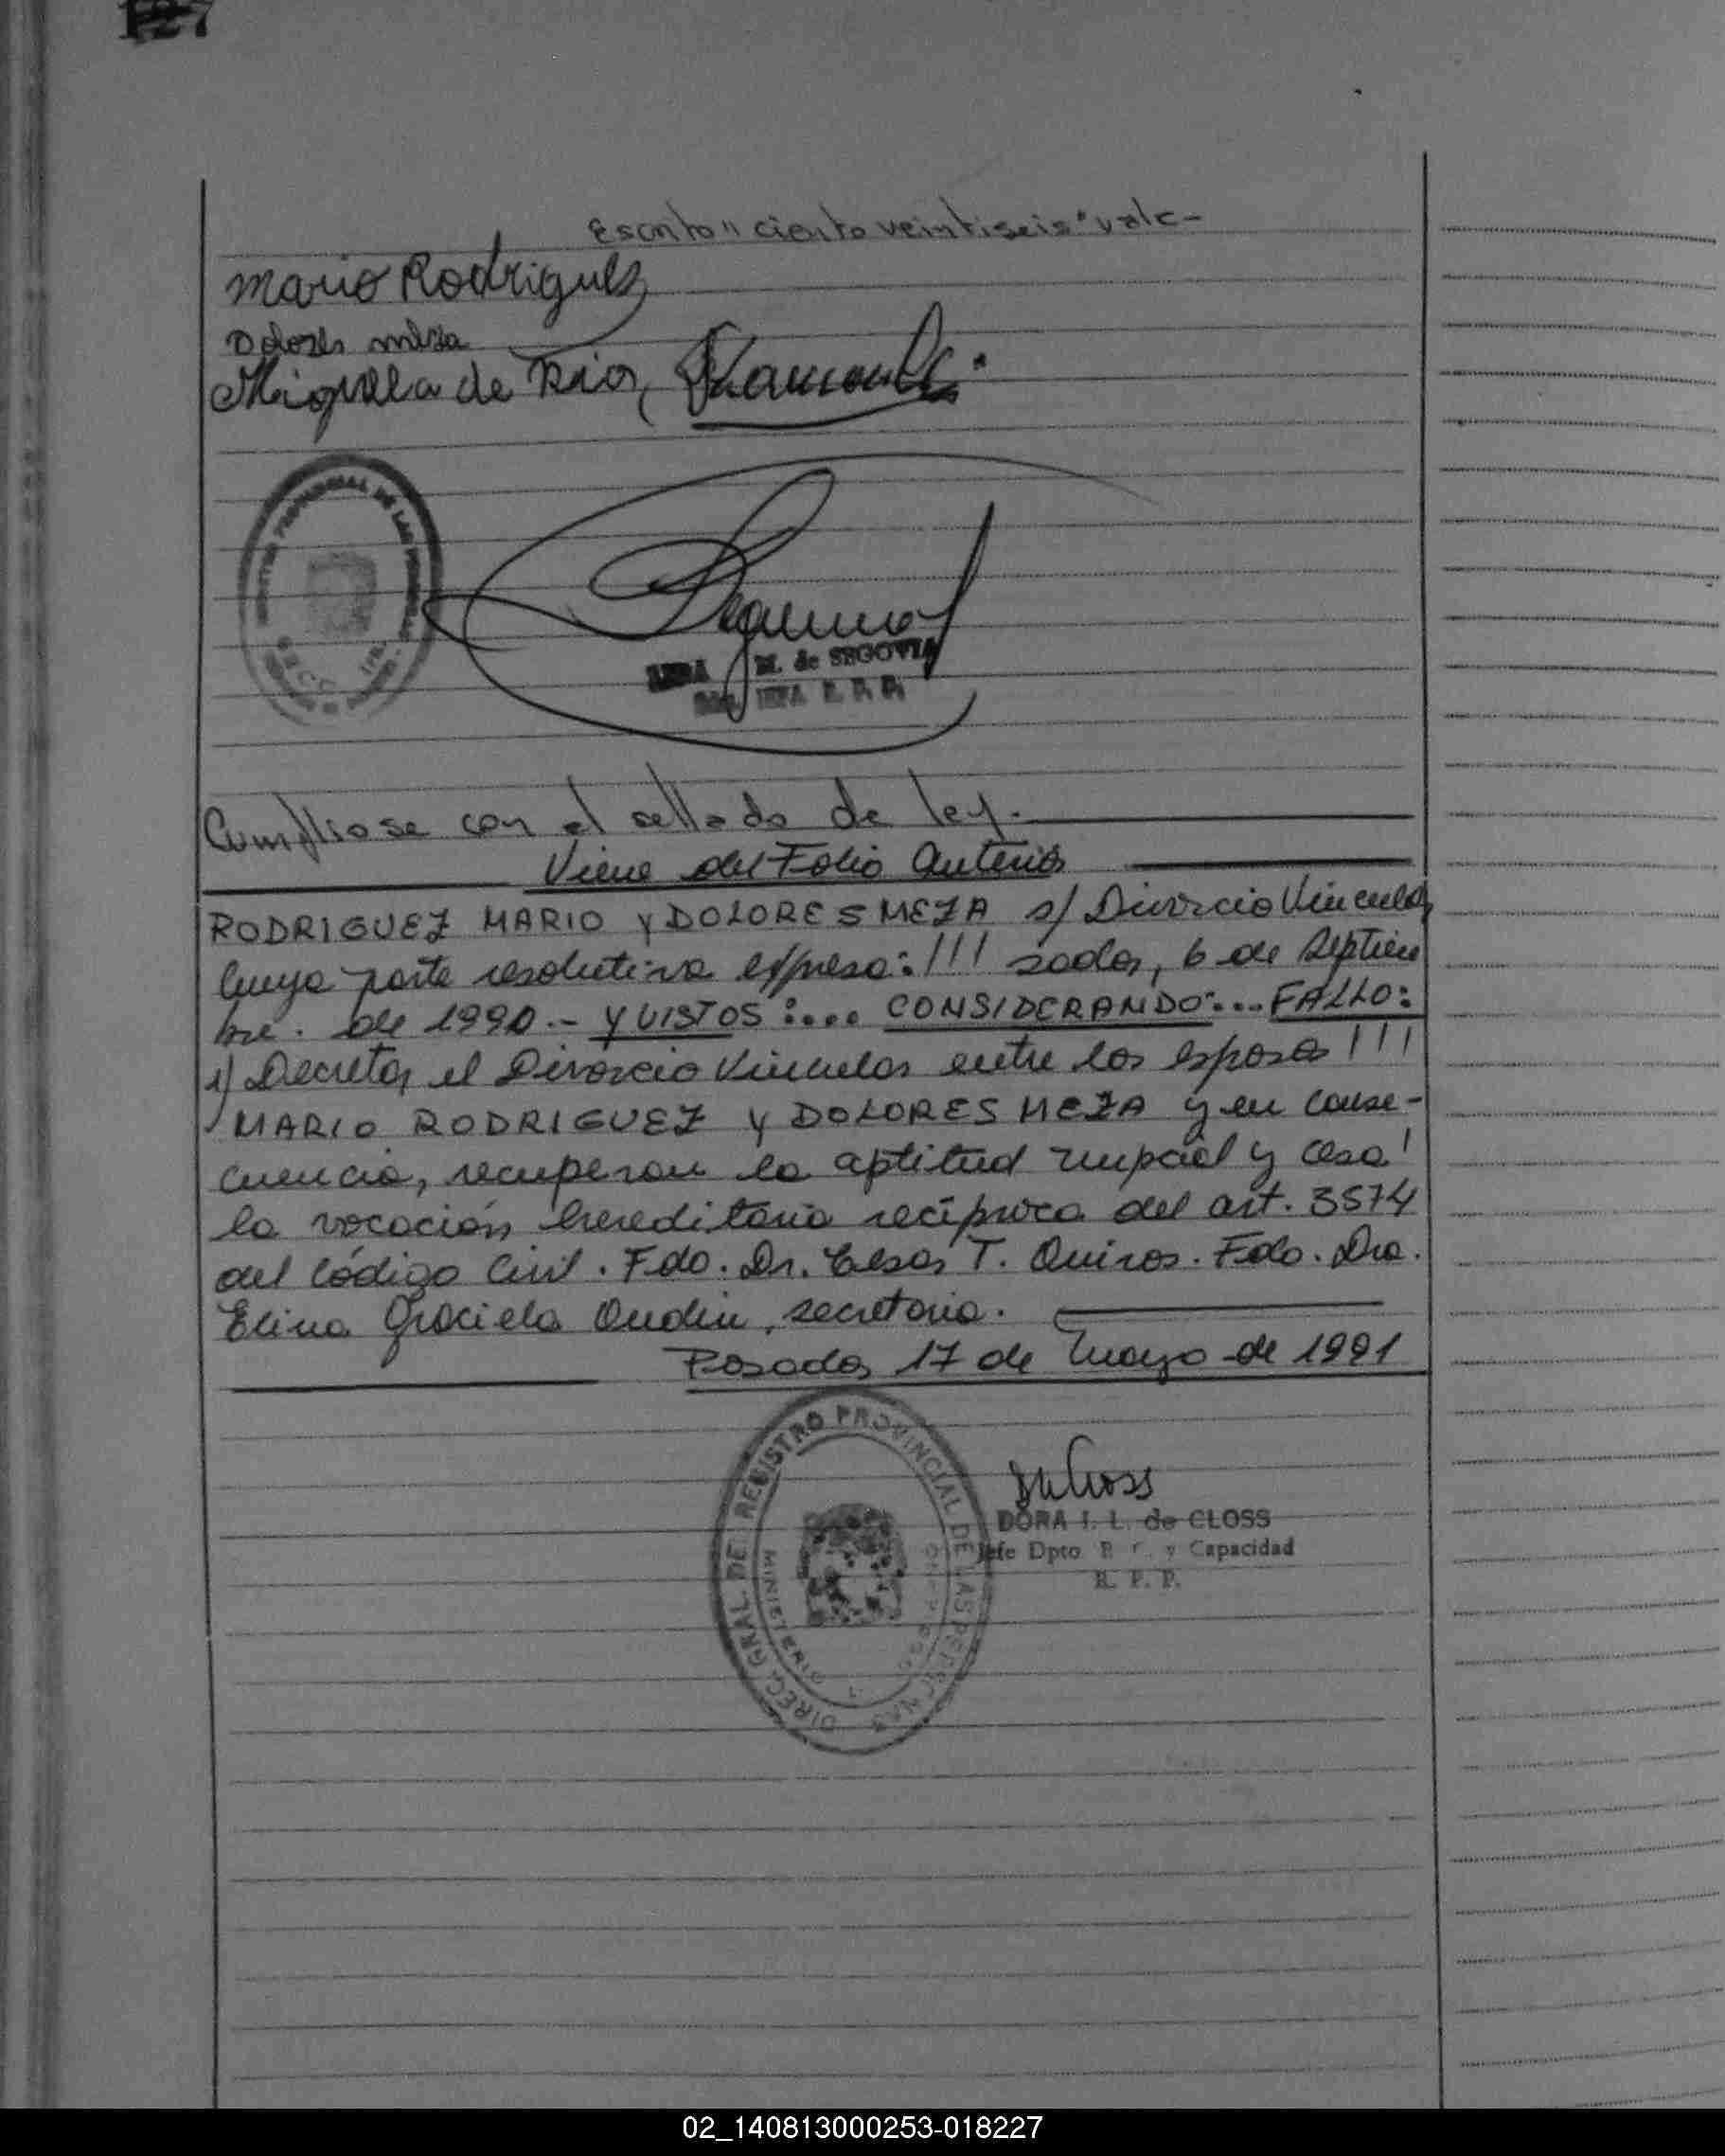 127
Escrito "ciento veintiseis" vale-
Mario Rodriguez
Dolores Meza
Miguela de Rios
M. de SEGOVIA
R. P. P.
Cumpliose con el sellado de ley.-
Viene del Folio Anterior
RODRIGUEZ MARIO Y DOLORES MEZA s/ Divorcio Vincular
Cuya parte resolutiva expresa: !!! sadas, 6 de Septiem
bre. de 1990.- Y VISTOS:... CONSIDERANDO:... FALLO:
1) Decretar el Divorcio Vincular entre los esposos !!!
MARIO RODRIGUEZ Y DOLORES MEZA y en conse-
cuencia, recuperan la aptitud nupcial y cesa !
la vocación hereditaria recíproca del art. 3574
del Código Civil. Fdo. Dr. Cesar T. Quiros. Fdo. Dra.
Elina Graciela Ondin, secretaria.
Posadas, 17 de Mayo de 1991
DIREC. GRAL. DEL REGISTRO PROVINCIAL DE LAS PERSONAS
MINISTERIO
DORA I. L. de CLOSS
Jefe Dpto y Capacidad
R. P. P.
02_140813000253-018227